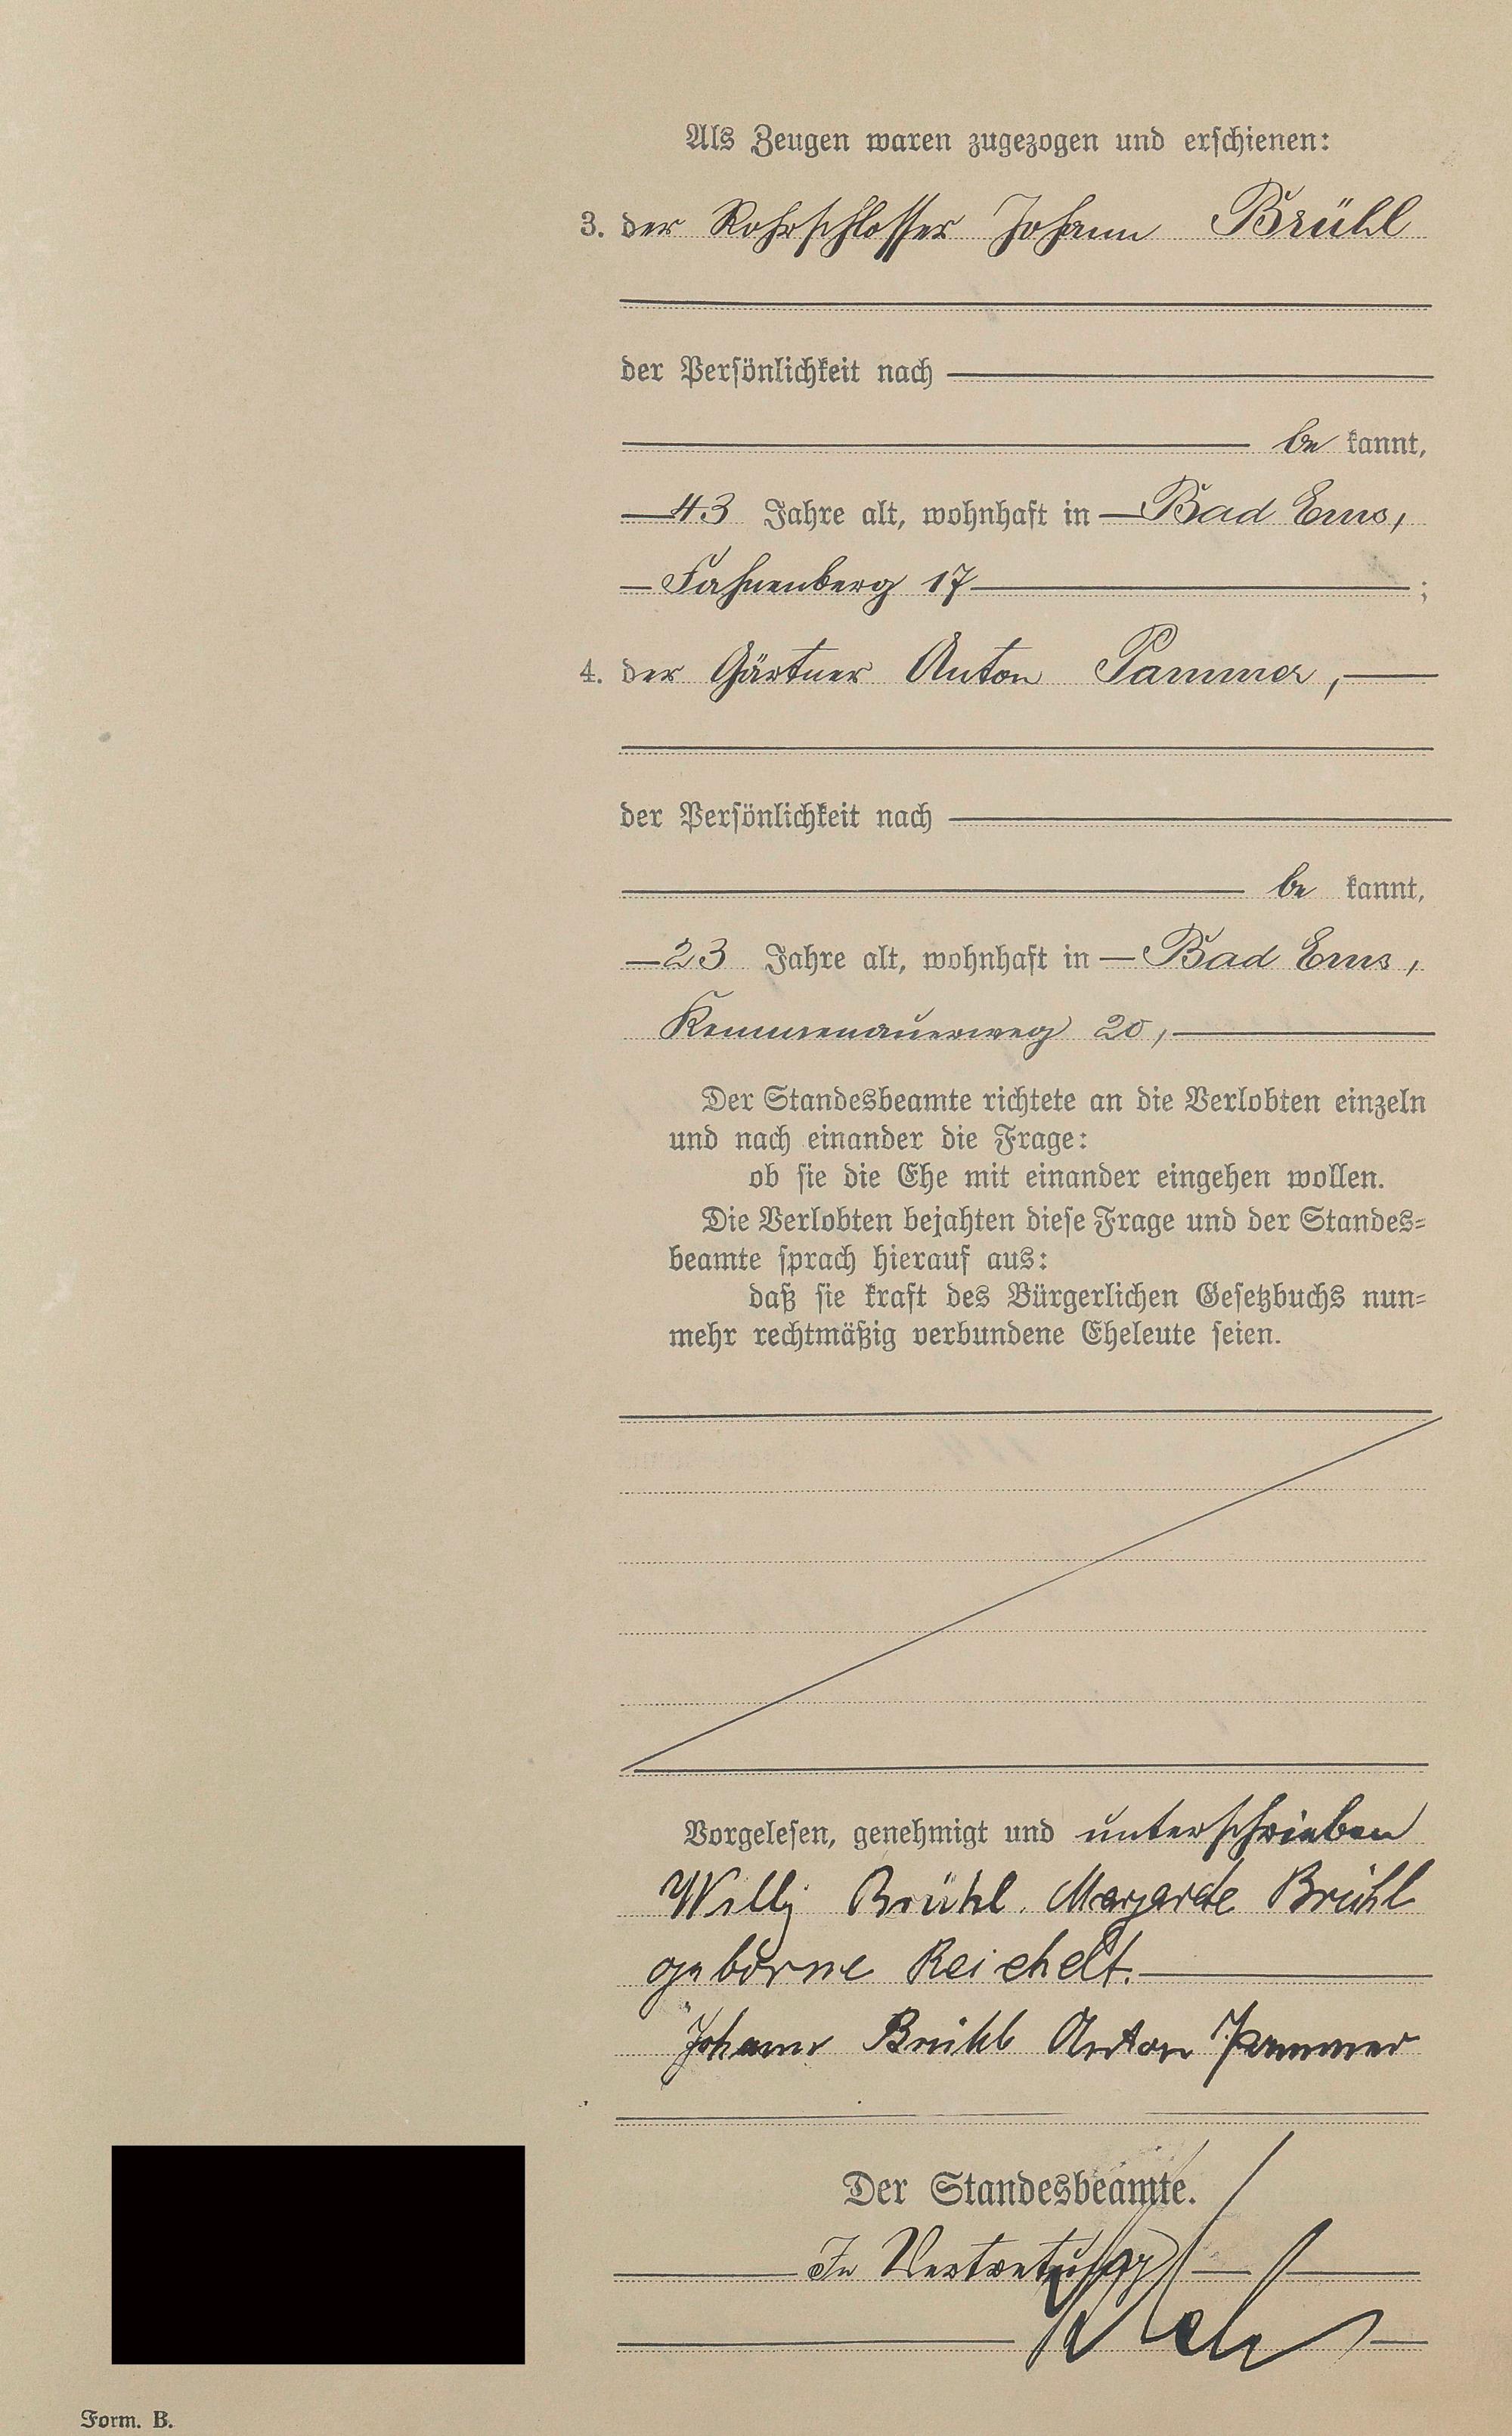 Als Zeugen waren zugezogen und erschienen:
3. der Rohrschlosser Johann Brühl
der Persönlichkeit nach
be kannt,
43 Jahre alt, wohnhaft in Bad Ems,
Fahnenberg 17 ;
4. der Gärtner Anton Pammer,
der Persönlichkeit nach
be kannt,
23 Jahre alt, wohnhaft in Bad Ems,
Kemmenauerweg 20,
Der Standesbeamte richtete an die Verlobten einzeln
und nach einander die Frage:
ob sie die Ehe mit einander eingehen wollen.
Die Verlobten bejahten diese Frage und der Standes-
beamte sprach hierauf aus:
daß sie kraft des Bürgerlichen Gesetzbuchs nun-
mehr rechtmäßig verbundene Eheleute seien.
Vorgelesen, genehmigt und unterschrieben
Willy Brühl. Margarete Brühl
geborne Reichelt.
Johann Brühl Anton Pammer
Der Standesbeamte.
In Vertretung
Form. B.